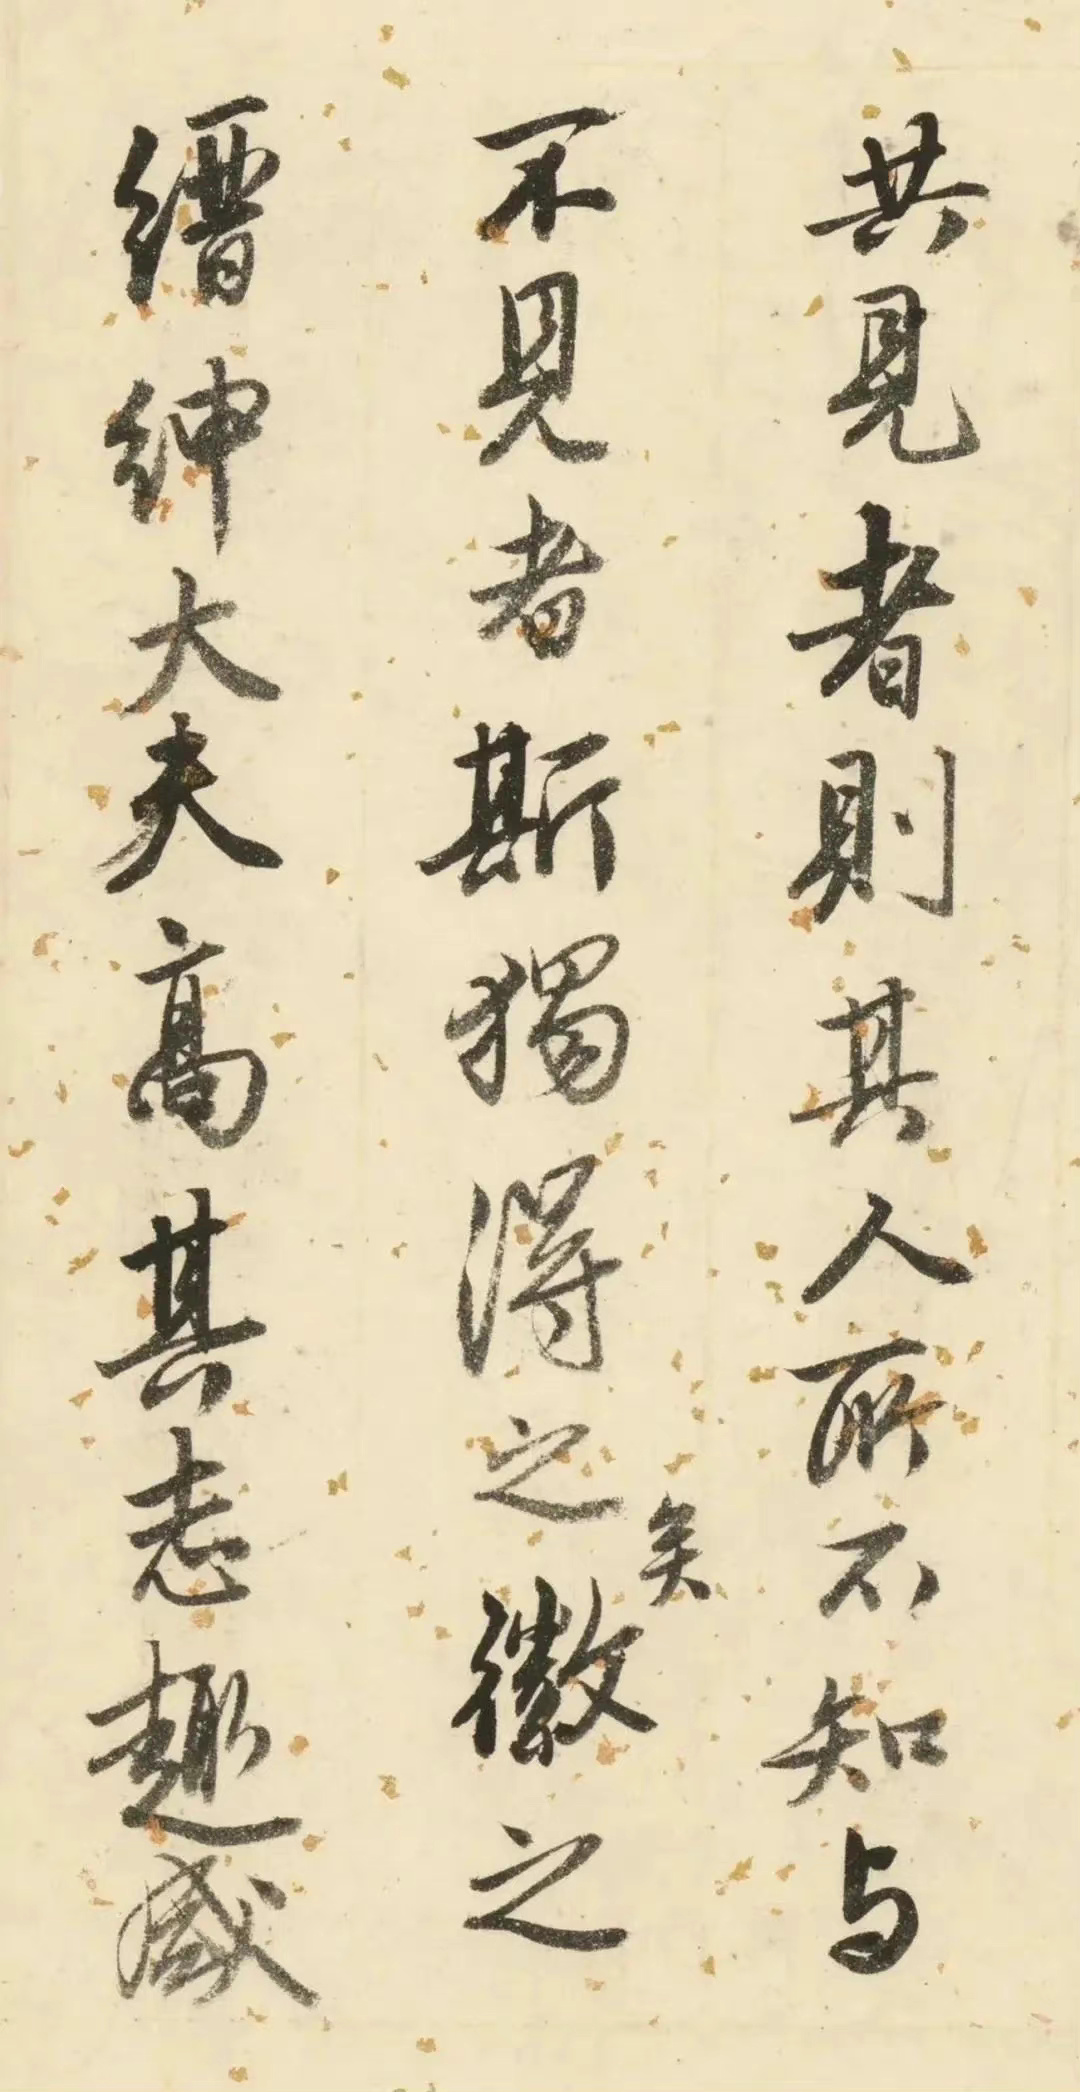 共見者則其人所不知与
不見者斯獨得之矣徽之
縉紳大夫高其志趣咸